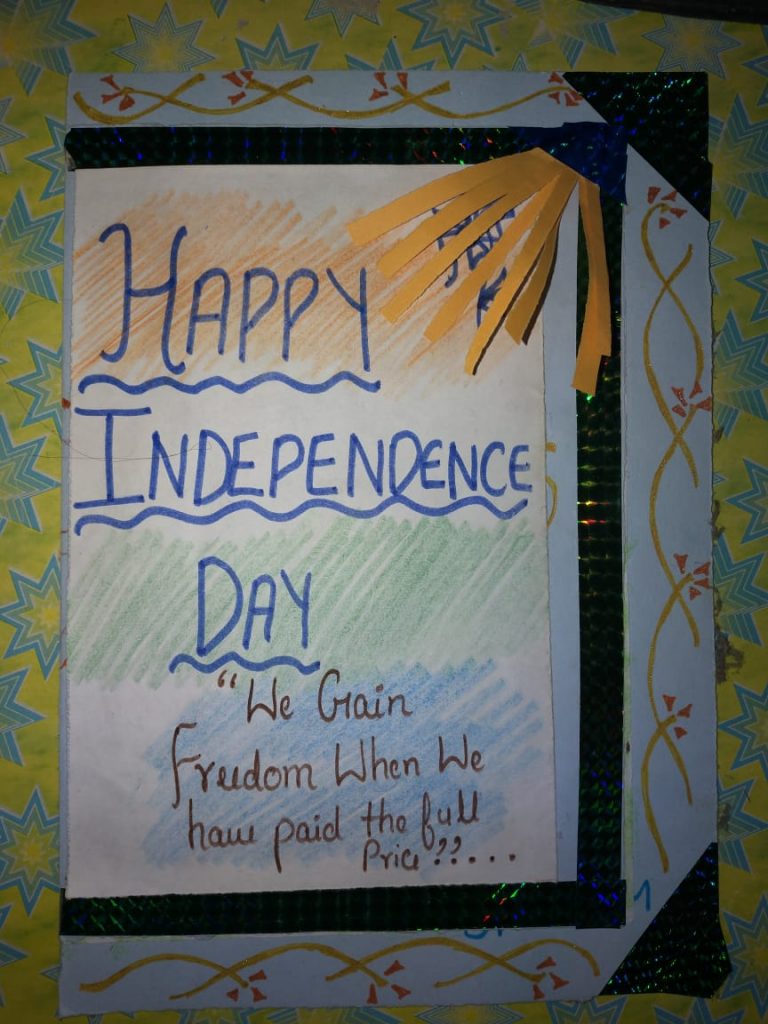 HAPPY
INDEPENDENCE
DAY
“We Gain
Freedom When We
have paid the full
Price??....
1